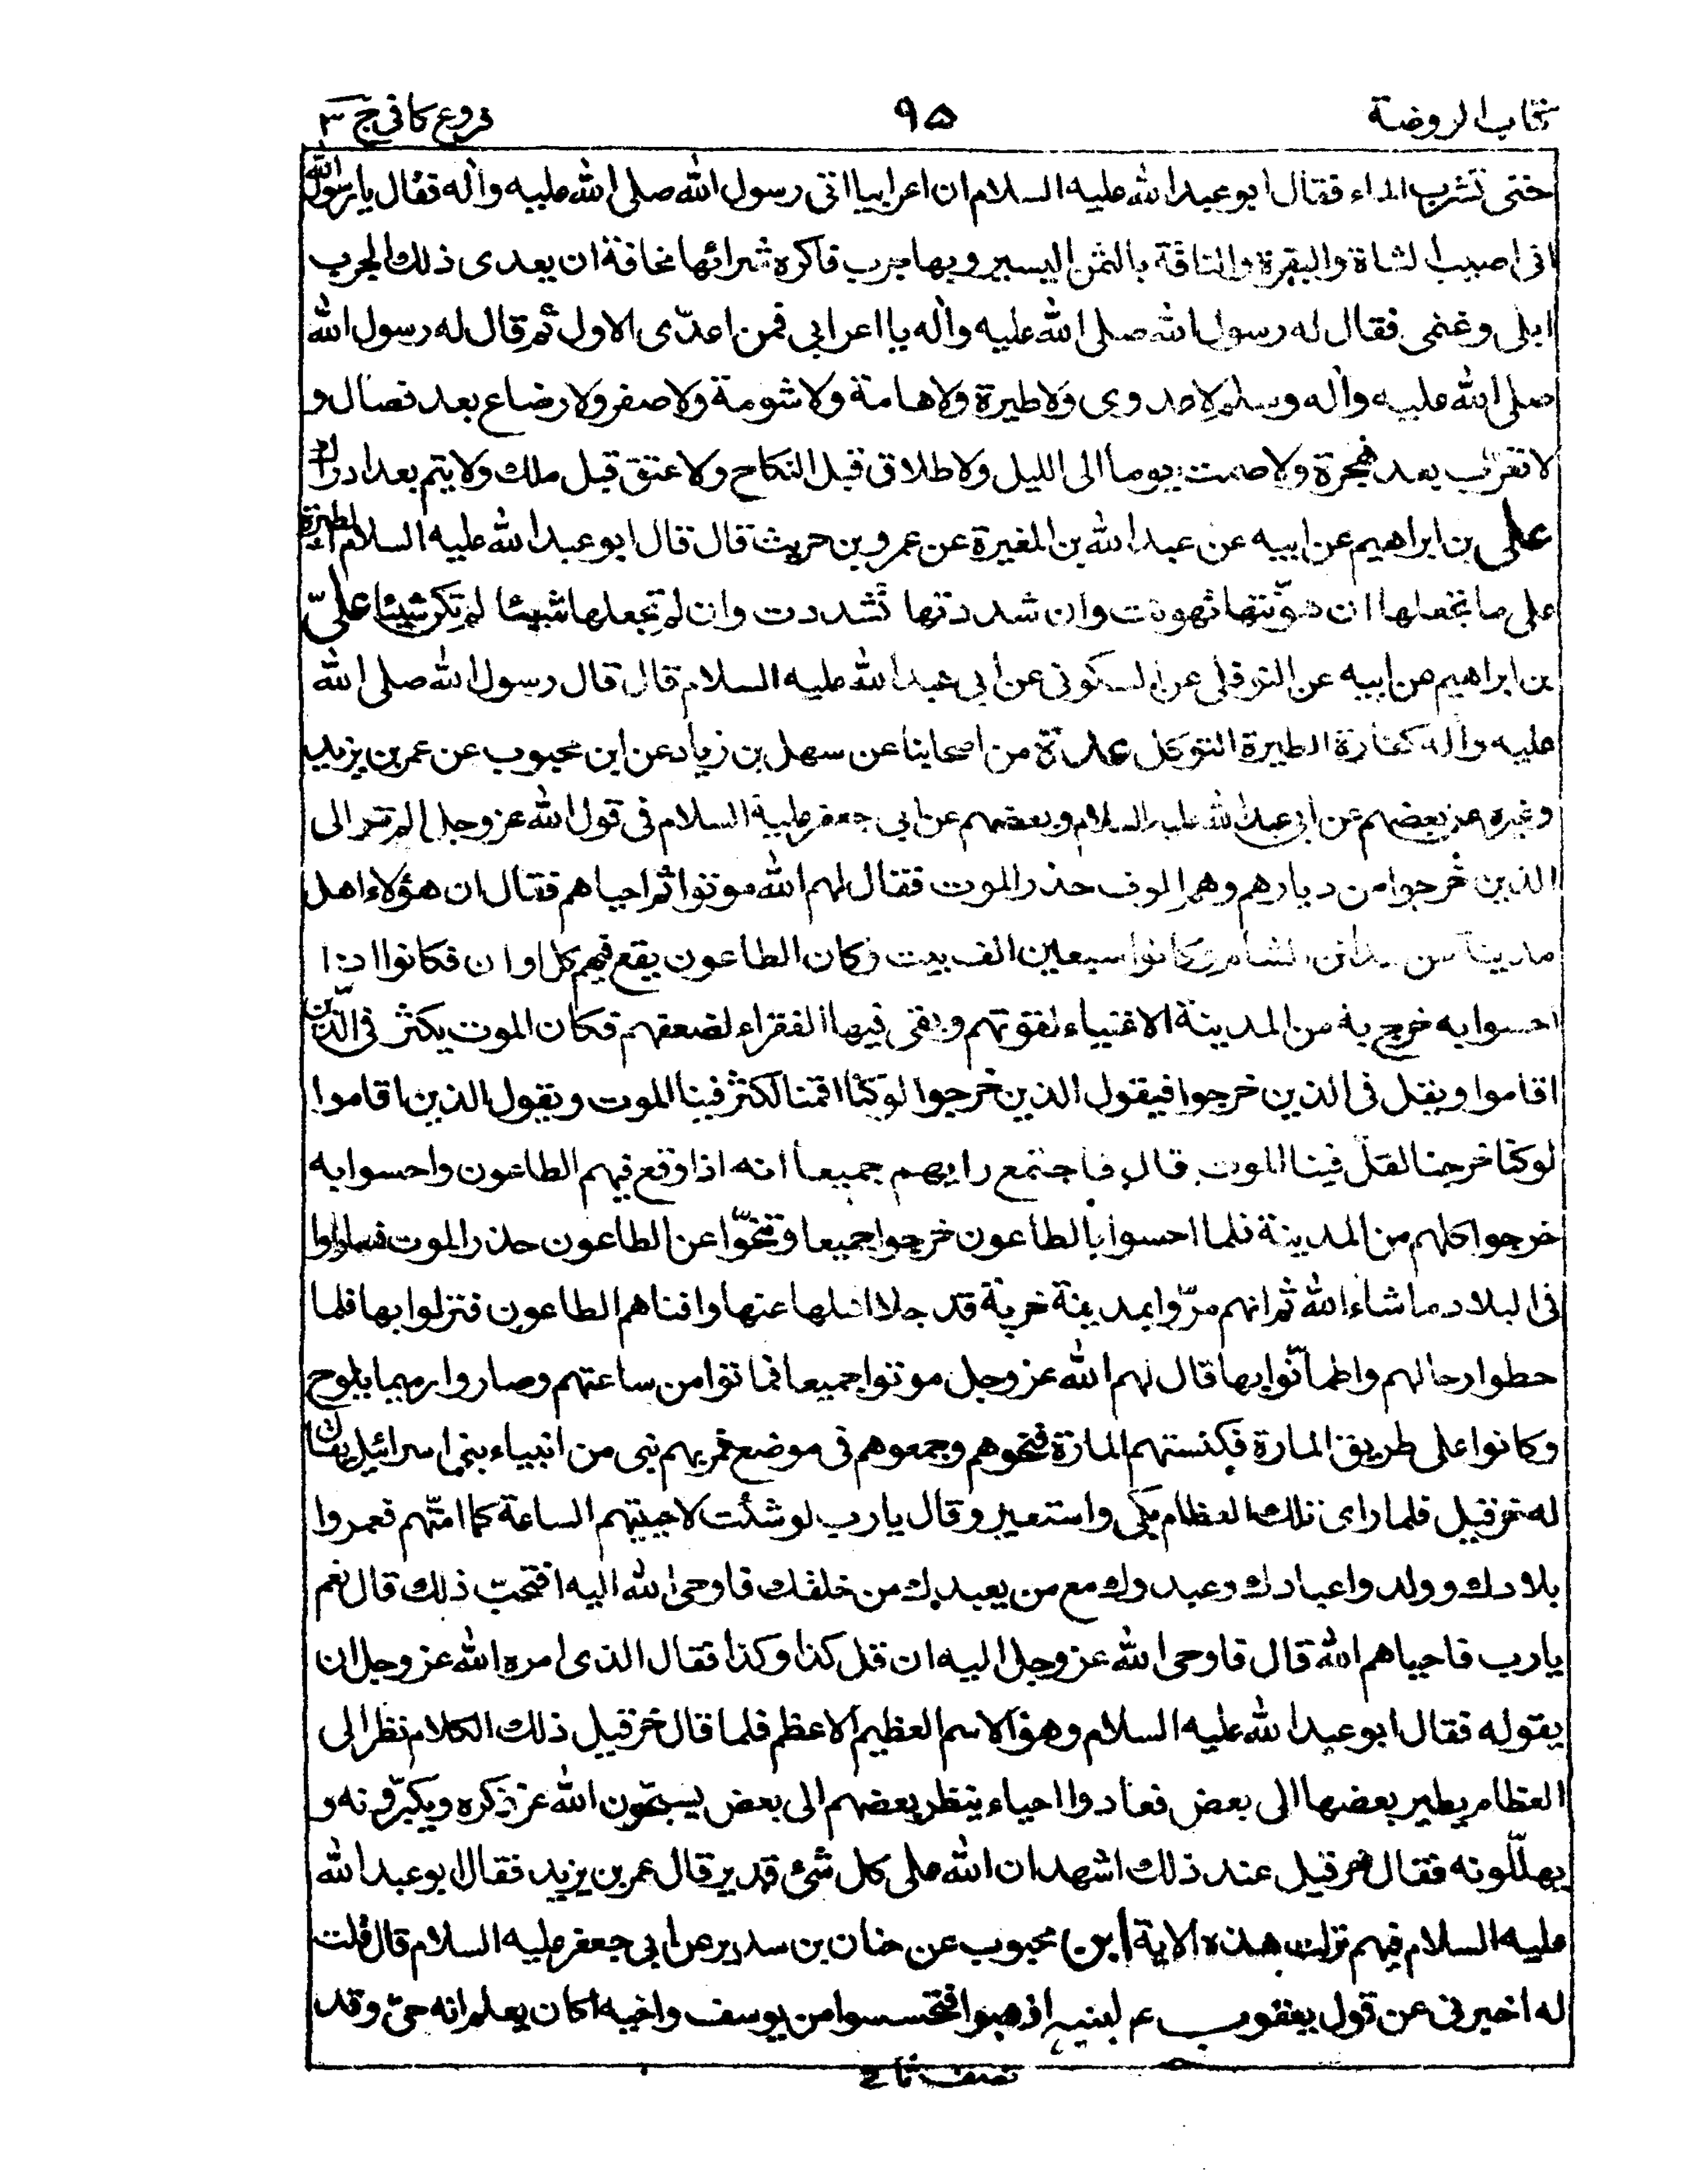 كتاب الروضة ٩۵ فروع كافى ج ٣
حتى تشرب الماء فقال ابو عبد الله عليه السلام ان اعرابيا اتى رسول الله صلى الله عليه واله فقال يا رسول الله
انى اصيب الشاة والبقرة والناقة بالثمن اليسير وبها جرب فاكره شرائها مخافة ان يعدى ذلك الجرب
ابلى وغنمى فقال له رسول الله صلى الله عليه واله يا اعرابى فمن اعدّى الاول ثم قال له رسول الله
صلى الله عليه واله وسلم لا عدوى ولا طيرة ولا هامة ولا شومة ولا صفر ولا رضاع بعد فصال و
لا تعرّب بعد هجرة ولا صمت يوما الى الليل ولا طلاق قبل النكاح ولا عتق قبل ملك ولا يتم بعد ادراك
على بن ابراهيم عن ابيه عن عبد الله بن المغيرة عن عمرو بن حريث قال قال ابو عبد الله عليه السلام الطيرة
على ما تجعلها ان هوّنتها تهونت وان شددتها تشددت وان لم تجعلها شيئا لم تكن شيئا علىّ
بن ابراهيم عن ابيه عن النوفلى عن السكونى عن ابى عبد الله عليه السلام قال قال رسول الله صلى الله
عليه واله كفارة الطيرة التوكل عدة من اصحابنا عن سهل بن زياد عن ابن محبوب عن عمر بن يزيد
وغيره عن بعضهم عن ابى عبد الله عليه السلام وبعضهم عن ابى جعفر عليه السلام فى قول الله عز وجل الم تر الى
الذين خرجوا من ديارهم وهم الوف حذر الموت فقال لهم الله موتوا ثم احياهم فقال ان هؤلاء اهل
مدينة من مدائن الشام وكانوا سبعين الف بيت وكان الطاعون يقع فيهم كل اوان فكانوا اذا
احسوا به خرج به من المدينة الاغنياء لقوتهم وبقى فيها الفقراء لضعفهم فكان الموت يكثر فى الّذين
اقاموا ويقل فى الذين خرجوا فيقول الذين خرجوا لو كنّا اقمنا لكثر فينا الموت ويقول الذين اقاموا
لو كنا خرجنا لقلّ فينا الموت قال فاجتمع رايهم جميعا انه اذا وقع فيهم الطاعون واحسوا به
خرجوا كلهم من المدينة فلما احسوا بالطاعون خرجوا جميعا وتنحّوا عن الطاعون حذر الموت فساروا
فى البلاد ما شاء الله ثم انهم مرّوا بمدينة خربة قد جلا اهلها عنها وافناهم الطاعون فنزلوا بها فلما
حطوا رحالهم واطمأنّوا بها قال لهم الله عز وجل موتوا جميعا فماتوا من ساعتهم وصاروا رميما يلوح
وكانوا على طريق المارة فكنستهم المارة فنحوهم وجمعوهم فى موضع فمر بهم نبى من انبياء بنى اسرائيل يقال
له حزقيل فلما راى تلك العظام بكى واستعبر وقال يا رب لو شئت لاحييتهم الساعة كما امتّهم فعمروا
بلادك وولدوا عبادك وعبدوك مع من يعبدك من خلقك فاوحى الله اليه افتحبّ ذلك قال نعم
يا رب فاحياهم الله قال فاوحى الله عز وجل اليه ان قل كذا وكذا فقال الذى امره الله عز وجل ان
يقوله فقال ابو عبد الله عليه السلام وهو الاسم العظيم الاعظم فلما قال حزقيل ذلك الكلام نظر الى
العظام يطير بعضها الى بعض فعادوا احياء ينظر بعضهم الى بعض يسبّحون الله عز ذكره ويكبّرونه و
يهلّلونه فقال حزقيل عند ذلك اشهد ان الله على كل شئ قدير قال عمر بن يزيد فقال ابو عبد الله
عليه السلام فيهم نزلت هذه الاية ابن محبوب عن حنان بن سدير عن ابى جعفر عليه السلام قال قلت
له اخبرنى عن قول يعقوب ع لبنيه اذهبوا فتحسسوا من يوسف واخيه اكان يعلم انه حىّ وقد